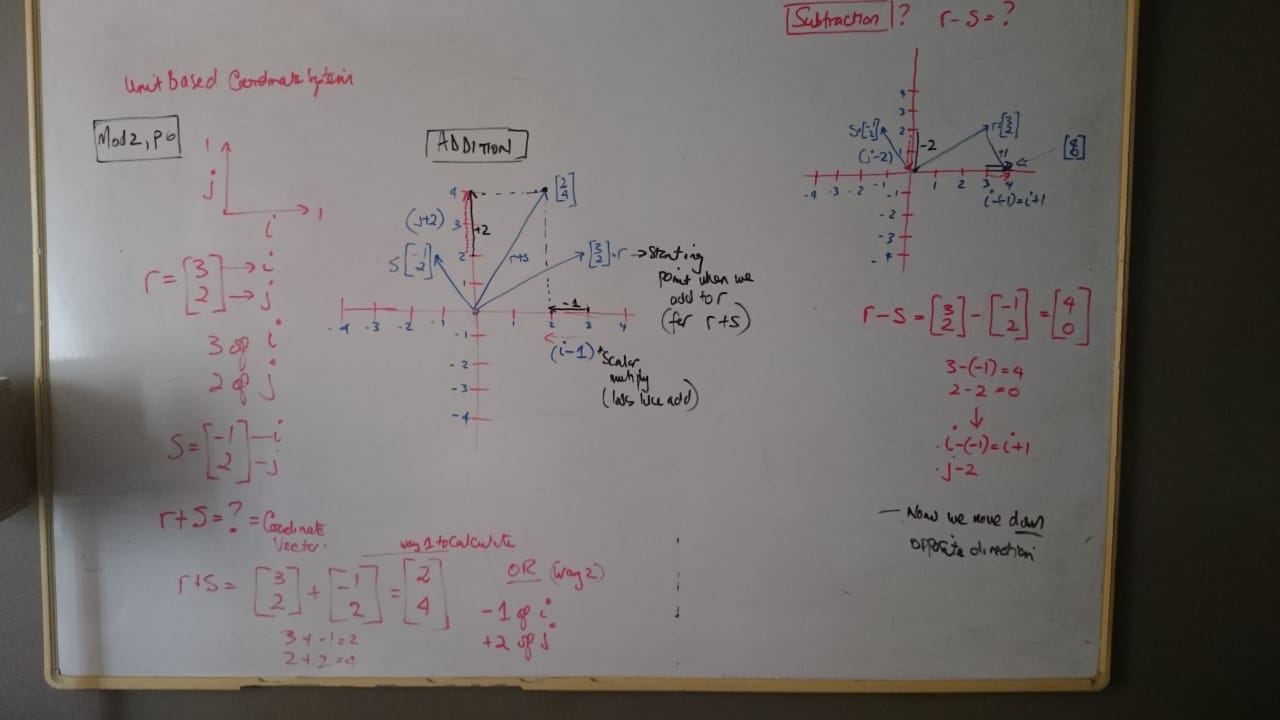 Unit Based Coordinate System
Mod2, P6
1
j
i
1
r = [3 2] → i → j
3 of i
2 of j
S = [-1 2] — i — j
r+S = ? = Coordinate
Vector.
way 1 to calculate
r+S = [3 2] + [-1 2] = [2 4]
3 + -1 = 2
2 + 2 = 4
OR (way 2)
-1 of i
+2 of j
ADDITION
[2 4]
(j+2)
+2
S [-1 2]
r+s
[3 2] = r → Starting
point when we
add to r
(for r+S)
-1
4
3
2
1
-4 -3 -2 -1 1 2 3 4
-1
-2
-3
-4
(i-1) * Scalar
multiply
(looks like add)
Subtraction ? r - S = ?
4
3
2
1
S=[-1 2]
(j-2)
-2
r=[3 2]
+1
[4 0]
-4 -3 -2 -1 1 2 3 4
-1
-2
-3
-4
i-(-1)=i+1
r-S = [3 2] - [-1 2] = [4 0]
3-(-1)=4
2-2=0
↓
. i-(-1)=i+1
. j-2
— Now we move down
opposite direction